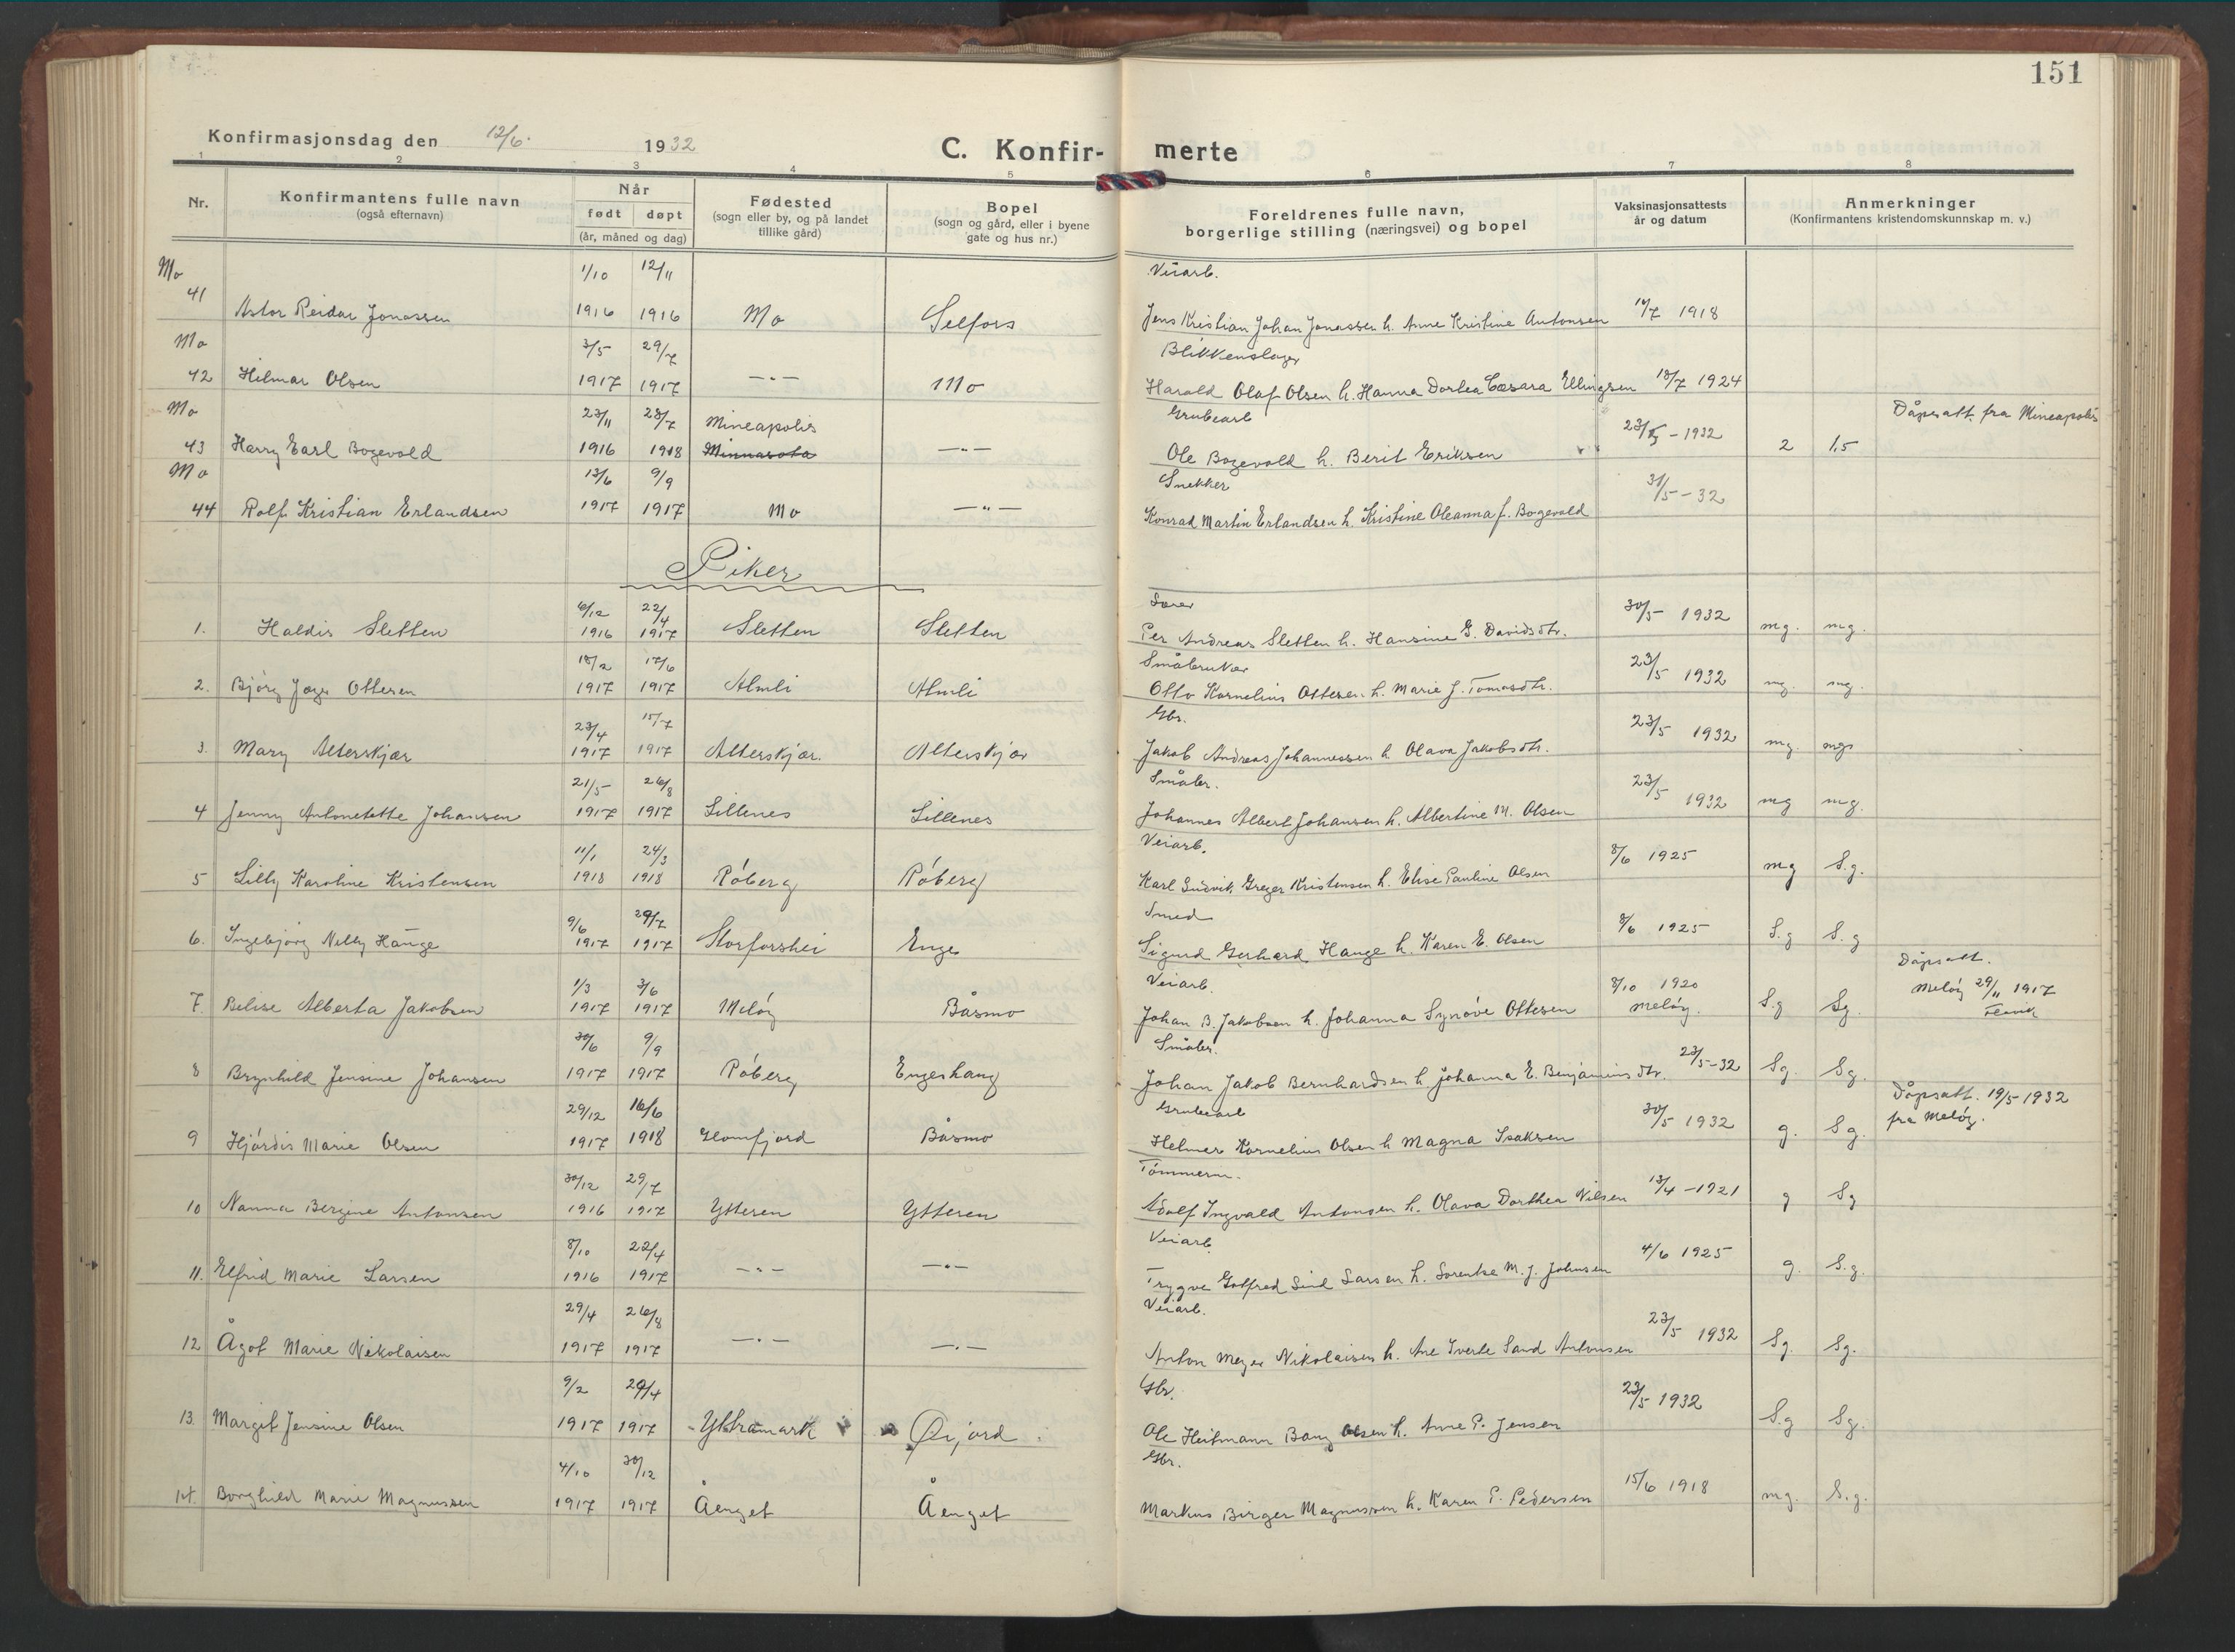 151
Konfirmasjonsdag den 12/6. 1932
C. Konfir- merte
1 2 3 4 5 6 7 8
Nr.
Konfirmantens fulle navn
(også efternavn)
Når
født døpt
(år, måned og dag)
Fødested
(sogn eller by, og på landet
tillike gård)
Bopel
(sogn og gård, eller i byene
gate og hus nr.)
Foreldrenes fulle navn,
borgerlige stilling (næringsvei) og bopel
Vaksinasjonsattests
år og datum
Anmerkninger
(Konfirmantens kristendomskunnskap m. v.)
Mo 1/10 12/11 Veiarb.
41 Astor Reidar Jonassen 1916 1916 Mo Selfors Jens Kristian Johan Jonassen h. Anne Kristine Antonsen 1918
Mo 3/5 29/7 Blikkenslager
42 Hilmar Olsen 1917 1917 —"— Mo Harald Olaf Olsen h. Hanna Dorthea Cæsara Ellingsen 18/7 1924
Mo 23/11 28/7 Mineapolis Grubearb Dåpsatt. fra Mineapolis
43 Harry Earl Bogevold 1916 1918 Minnasota —"— Ole Bogevold h. Berit Eriksen 23/5 - 1932 2 1,5
Mo 13/6 9/9 Snekker
44 Rolf Kristian Erlandsen 1917 1917 Mo —"— Konrad Martin Erlandsen h. Kristine Oleanna f. Bogevold 31/5 - 32
Piker
6/12 22/4
1. Haldis Sletten 1916 1917 Sletten Sletten Per Andreas Sletten h. Hansine G. Davidsdtr. 30/5 1932 mg. mg.
18/2 17/6 Småbruker
2. Bjørg Ottesen 1917 1917 Almli Almli Otto Kornelius Ottesen h. Marie J. Tomasdtr. 23/5 1932 mg. mg.
23/4 15/7 Gbr.
3. Mary Alterskjær 1917 1917 Alterskjær. Alterskjær Jakob Andreas Johannessen h. Olava Jakobsdtr. 23/5 1932 mg. mg.
21/5 26/8 Småbr.
4 Jenny Antonetette Johansen 1917 1917 Lillenes Lillenes Johannes Albert Johansen h. Albertine M. Olsen 23/5 1932 mg mg.
11/1 24/3 Veiarb.
5 Lilly Karoline Kristensen 1918 1918 Røberg Røberg Karl Ludvik Greger Kristensen h. Elise Pauline Olsen 8/6 1925 mg S.g.
9/6 29/7 Smed
6. Ingebjørg Nelly Hauge 1917 1917 Storforshei Enge Sigurd Gerhard Hauge h. Karen E. Olsen 8/6 1925 S.g S.g
1/3 3/6 Veiarb. Dåpsatt.
7. Belise Alberta Jakobsen 1917 1917 Meløy Båsmo Johan B. Jakobsen h. Johanna Synøve Ottesen 8/10 1920 Meløy. S.g Sg. Meløy 29/11 1917
30/6 9/9 Småbr.
8 Brynhild Jensine Johansen 1917 1917 Røberg Engeshaug Johan Jakob Bernhardsen h. Johanna E. Benjaminsdtr. 23/5-32 Sg. Sg.
29/12 16/6 Grubearb Dåpsatt. 19/5 1932
9 Hjørdis Marie Olsen 1917 1918 Glomfjord Båsmo Helmer Kornelius Olsen h Magna Isaksen 30/5 1932 g. Sg. fra Meløy.
30/12 29/7 Tømmerm.
10 Nanna Bergine Antonsen 1916 1917 Ytteren Ytteren Adolf Ingvald Antonsen h. Olava Dorthea Nilsen 13/4 - 1921 g Sg
8/10 22/4 Veiarb
11. Elfrid Marie Larsen 1916 1917 —"— —"— Trygve Gotfred Larsen h. Sorentse M. J. Johnsen 4/6 1925 g. S.g.
29/4 26/8 Veiarb.
12 Ågot Marie Nikolaisen 1917 1917 —"— —"— Anton Meyer Nikolaisen h. Ane Iverte Sand Antonsen 23/5 1932 Sg. Sg.
9/2 29/4 Gbr.
13. Margit Jensine Olsen 1917 1917 Yttramark Øijord Ole Heitmann Bang Olsen h. Anne P. Jensen 23/5 1932 S.g Sg.
4/10 30/12 Gbr.
14. Borghild Marie Magnussen 1917 1917 Åenget Åenget Markus Birger Magnussen h. Karen P. Pedersen 15/6 1918 mg. S.g.